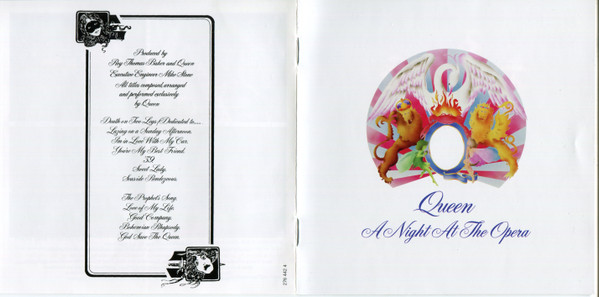 Produced by
Roy Thomas Baker and Queen
Executive Engineer Mike Stone
All titles composed, arranged
and performed exclusively
by Queen
Death on Two Legs (Dedicated to......
Lazing on a Sunday Afternoon.
I'm in Love With My Car.
You're My Best Friend.
'39
Sweet Lady.
Seaside Rendezvous.
The Prophet's Song.
Love of My Life.
Good Company.
Bohemian Rhapsody.
God Save The Queen.
Queen
A Night At The Opera